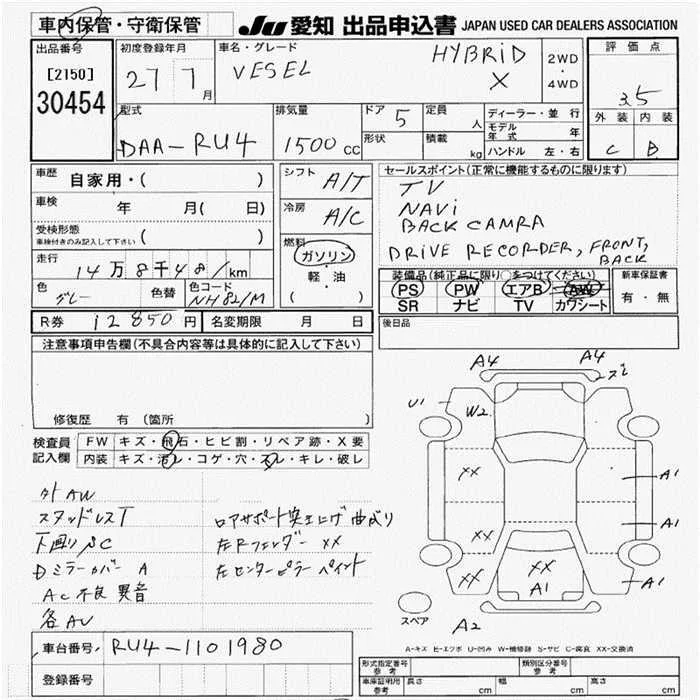 車内保管・守衛保管
JU 愛知 出品申込書 JAPAN USED CAR DEALERS ASSOCIATION
出品番号
[2150]
30454
初度登録年月
27 7月
車名・グレード
VESEL HYBRID X
2WD
・
4WD
評価点
3.5
外装 内装
C B
型式
DAA-RU4
排気量
1500cc
ドア 5
形状
定員 人
積載 kg
ディーラー・並行
モデル年式 年
ハンドル 左・右
車歴 自家用・( )
車検 年 月( 日)
受検形態
車検付きのみ記入して下さい ( )
走行 14万8千481km
色 グレー
色替
色コード NH82/M
R券 12850円
名変期限 月 日
シフト A/T
冷房 A/C
燃料
ガソリン
軽・油
( )
セールスポイント(正常に機能するものに限ります)
TV
NAVi
BACK CAMRA
DRIVE RECORDER, FRONT, BACK
装備品(純正品に限り○をつけてください)
PS PW エアB AW
SR ナビ TV カワシート
新車保証書
有・無
後日品
注意事項申告欄(不具合内容等は具体的に記入して下さい)
修復歴 有 (箇所 )
検査員記入欄
FW キズ・飛石・ヒビ割・リペア跡・X要
内装 キズ・汚レ・コゲ・穴・スレ・キレ・破レ
外AW
スタッドレスT
下廻りSC
Dミラーカバー A
AC不良 異音
各AU
ロアサポート突上げ曲がり
左Rフェンダー XX
左センターピラー ペイント
A4 A4
ズレ
U1 W2
XX A1
A1
XX
XX XX A1
A1
スペア
A2
A-キズ E-エクボ U-凹み W-補修跡 S-サビ C-腐食 XX-交換済
車台番号 RU4-1101980
登録番号
形式指定番号 参考
類別区分番号 参考
車庫証明用 参考
長さ cm 幅 cm 高さ cm